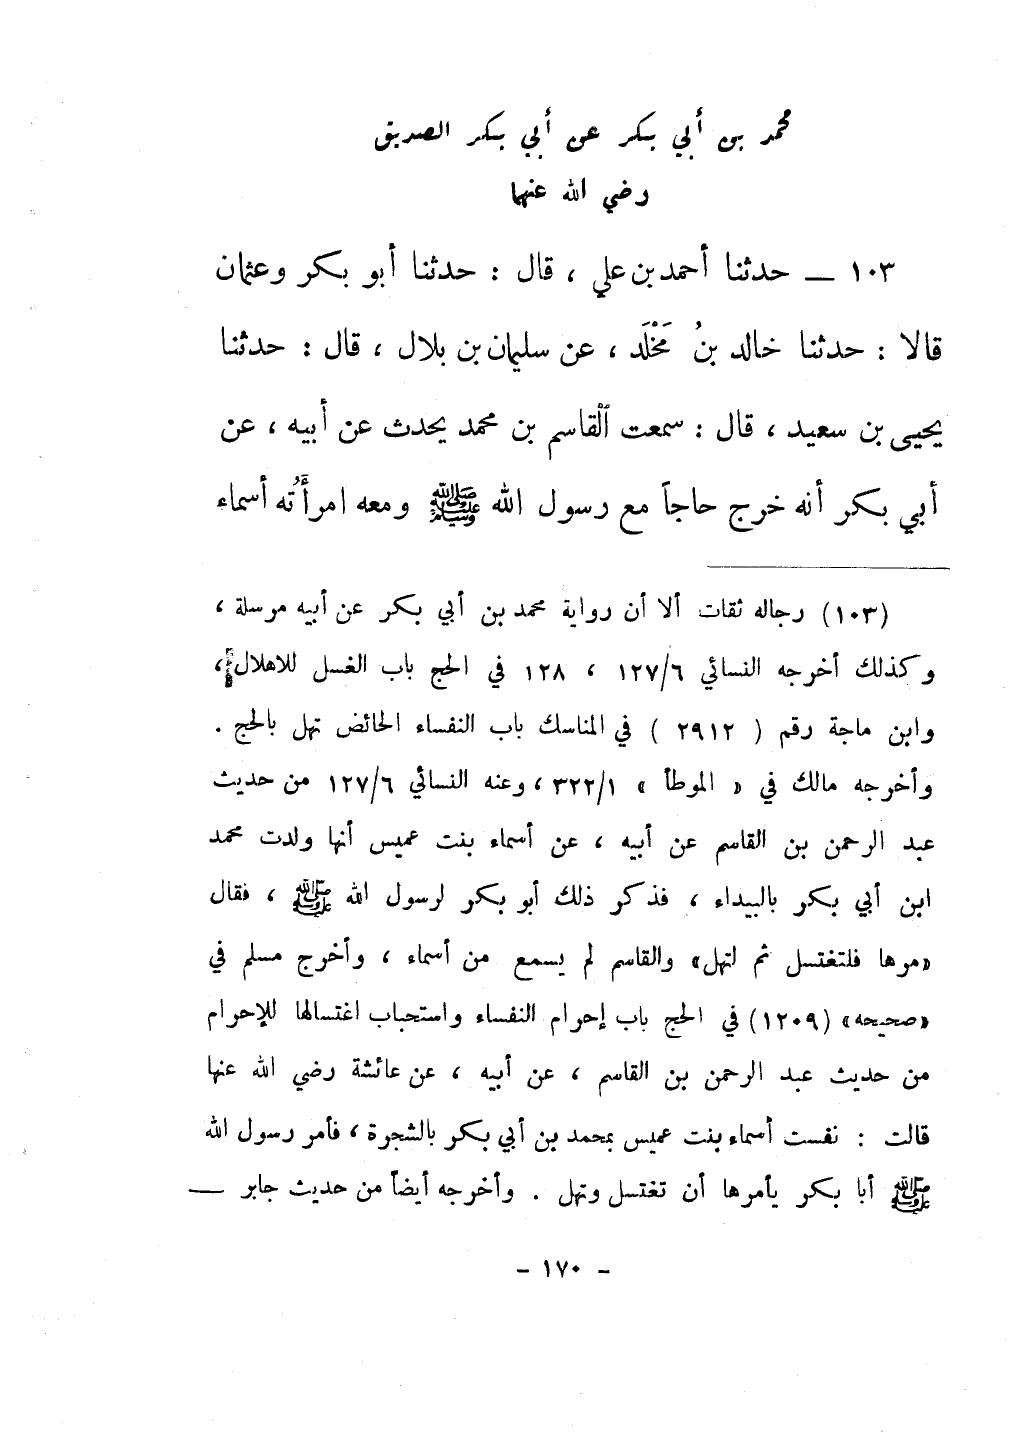 محمد بن أبي بكر عن أبي بكر الصديق
رضي الله عنهما
١٠٣ — حدثنا أحمد بن علي ، قال : حدثنا أبو بكر وعثمان
قالا : حدثنا خالد بنُ مَخْلَد ، عن سليمان بن بلال ، قال : حدثنا
يحيى بن سعيد ، قال : سمعت القاسم بن محمد يحدث عن أبيه ، عن
أبي بكر أنه خرج حاجاً مع رسول الله ﷺ ومعه امرأَتُه أسماء
(١٠٣) رجاله ثقات ألا أن رواية محمد بن أبي بكر عن أبيه مرسلة ،
وكذلك أخرجه النسائي ١٢٧/٦ ، ١٢٨ في الحج باب الغسل للاهلال ،
وابن ماجة رقم ( ٢٩١٢ ) في المناسك باب النفساء الحائض تهل بالحج .
وأخرجه مالك في « الموطأ » ٣٢٢/١ ، وعنه النسائي ١٢٧/٦ من حديث
عبد الرحمن بن القاسم عن أبيه ، عن أسماء بنت عميس أنها ولدت محمد
ابن أبي بكر بالبيداء ، فذكر ذلك أبو بكر لرسول الله ﷺ ، فقال
«مرها فلتغتسل ثم لتهل» والقاسم لم يسمع من أسماء ، وأخرج مسلم في
«صحيحه» (١٢٠٩) في الحج باب إحرام النفساء واستحباب اغتسالها للإحرام
من حديث عبد الرحمن بن القاسم ، عن أبيه ، عن عائشة رضي الله عنها
قالت : نفست أسماء بنت عميس بمحمد بن أبي بكر بالشجرة ، فأمر رسول الله
ﷺ أبا بكر يأمرها أن تغتسل وتهل . وأخرجه أيضاً من حديث جابر —
- ١٧٠ -